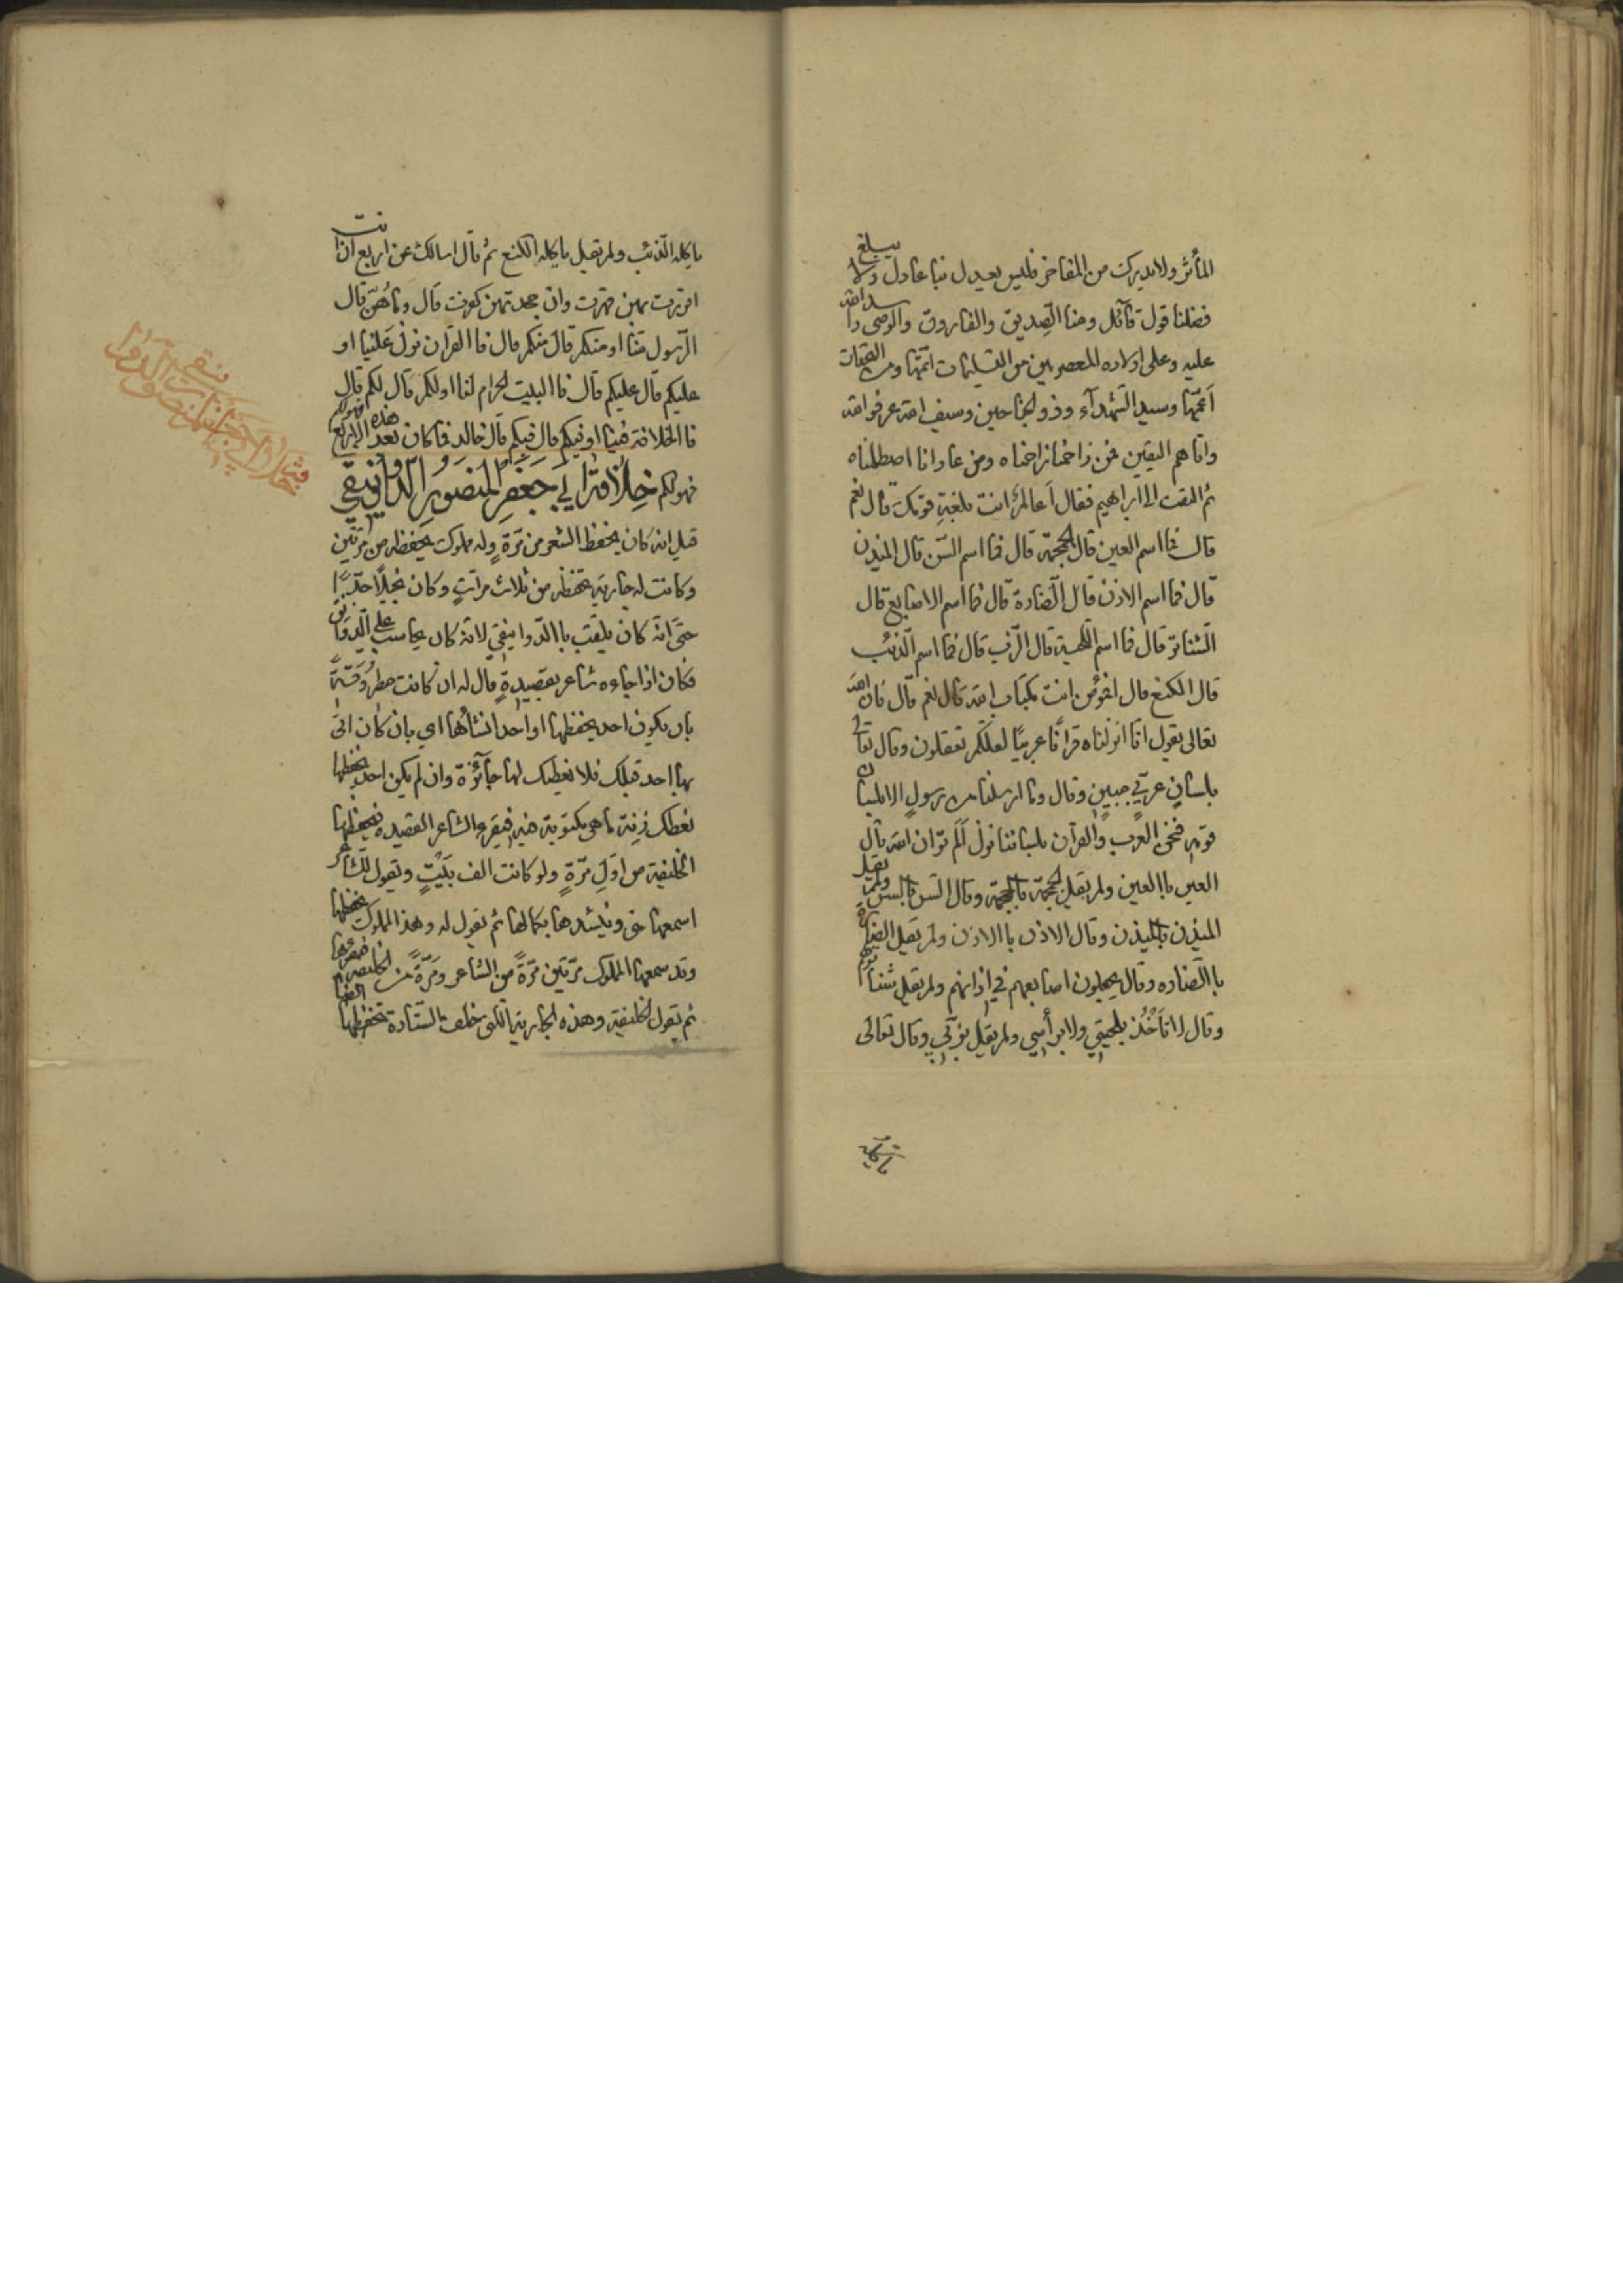 المأثر ولا يدركت من المفاخر فليس يعدل نبا عادل ولا يبلغ
فضلنا قول قآئل ومنا الصديق والفاروق والوصى واسد الله
عليه وعلى اولاده المعصومين من التسليمات اتمّها ومن التحيّات
اعمّها وسيد الشهدآء وذو الجناحين وسيف الله عرفوا الله
واتاهم اليقين فمن زاحمنا زاحمناه ومن عادانا اصطلمناه
ثم التفت الى ابراهيم فقال أعالم انت بلغة قومك قال نعم
قال فما اسم العين قال الجحمة قال فما اسم السّن قال الميذن
قال فما اسم الاذن قال الصّنارة قال فما اسم الاصابع قال
الشناتر قال فما اسم اللحية قال الزّب قال فما اسم الذئب
قال الكنع قال افمؤمن انت بكتاب الله قال نعم قال فان الله
تعالى يقول انا انزلناه قرانًا عربيًا لعلكم تعقلون وقال تعالى
بلسانٍ عربيٍ مبينٍ وقال وما ارسلنا من رسولٍ الا بلسان
قومه فنحن العرب والقرآن بلساننا نزل ألم تر ان الله قال
العين باالعين ولم يقل الجحمة بالجحمة وقال السن بالسن ولم يقل
الميذن بالميذن وقال الاذن باالاذن ولم يقل الصنارة
باالصناره وقال يجعلون اصابعهم في اذانهم ولم يقل شناترهم
وقال لا تأخُذ بلحيتي ولا برأسي ولم يقل بزبّي وقال تعالى
فاكله
فاكله الذئب ولم يقل فاكله الكنع ثم قال اسالك عن اربع ان انت
اقررت بهن قهرت وان جحدتهن كفرت قال وما هُنّ قال
الرّسول منّا او منكم قال منكم قال فاالقران نزل عَلَينا او
عليكم قال عليكم قال فاالبيت الحرام لنا اولكم قال لكم قال
فاالخلافة فينا او فيكم قال فيكم قال خالد فما كان بعد هذه الاربع فهو لكم
فهو لكم خِلَافَة ابي جَعفَرِ المنصُورِ الدوانيقي
قيل انه كان يحفظ الشعر من مرّةٍ وله مملوك يحفظه من مرّتين
وكانت له جارية تحفظه من ثلاث مراتٍ وكان بخيلًا جدًّا
حتى انّه كان يلقب باالدّوانيقي لانه كان يحاسب على الدّوانق
فكان اذا جاءه شاعر بقصيدةٍ قال له ان كانت مطرُوقَةً
بان يكون احد يحفظها او احد انشأها اي بان كان اتى
بها احد قبلك فلا نعطيك لها جآئزة وان لم يكن احد يحفظها
نعطك زنة ما هي مكتوبة فيه فيقرء الشاعر القصيده فيحفظها
الخليفة من اوّل مرّةٍ ولو كانت الف بيتٍ ويقول للشاعر
اسمعها منى وينشدها بكمالها ثم يقول له وهذا المملوك يحفظها
وقد سمعها المملوك مرّتين مرّةً من الشاعر ومرّةً من الخليفة فيقرءها
ثم يقول الخليفة وهذه الجارية التى خلف الستّارة تحفظها ايضا